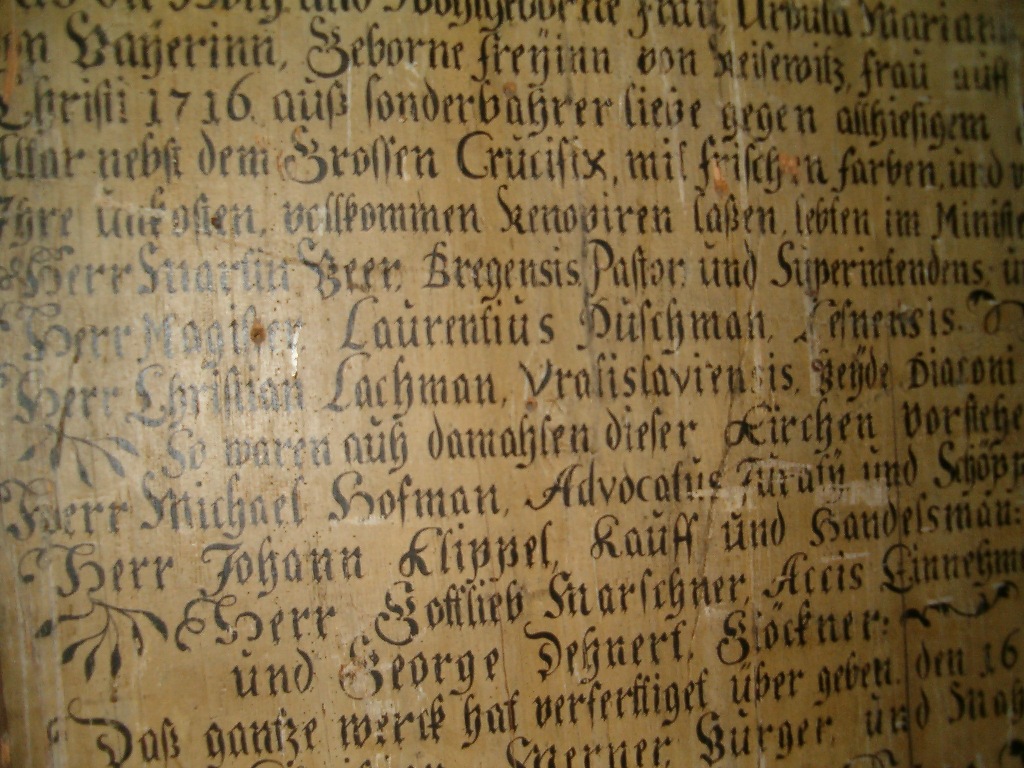 und Wohlgeborne Frau, Ursula Mariana
Bayerinn, Geborne Freyinn von Reisewitz, Frau auff
Christi: 1716. auß sonderbahrer liebe gegen allhiesigem
Altar nebst dem Grossen Crucifix, mit frischen farben, und
Ihre unkosten, vollkommen Renoviren laßen, lebten im
Herr Martin Beer, Bregensis, Pastor und Superintendens,
Herr Magister Laurentius Püschman, Lesnensis.
Herr Christian Lachman, Vratislaviensis. Beyde Diaconi
So waren auch damahlen dieser Kirchen
Herr Michael Hofman, Advocatus Juraty und
Herr Johann Klippel, Kauff und Handelsman:
Herr Gottlieb Marschner, Accis
und George Dehnert, Glöckner:
Daß gantze werck hat verferttiget über geben. den 16
Werner, Bürger, und